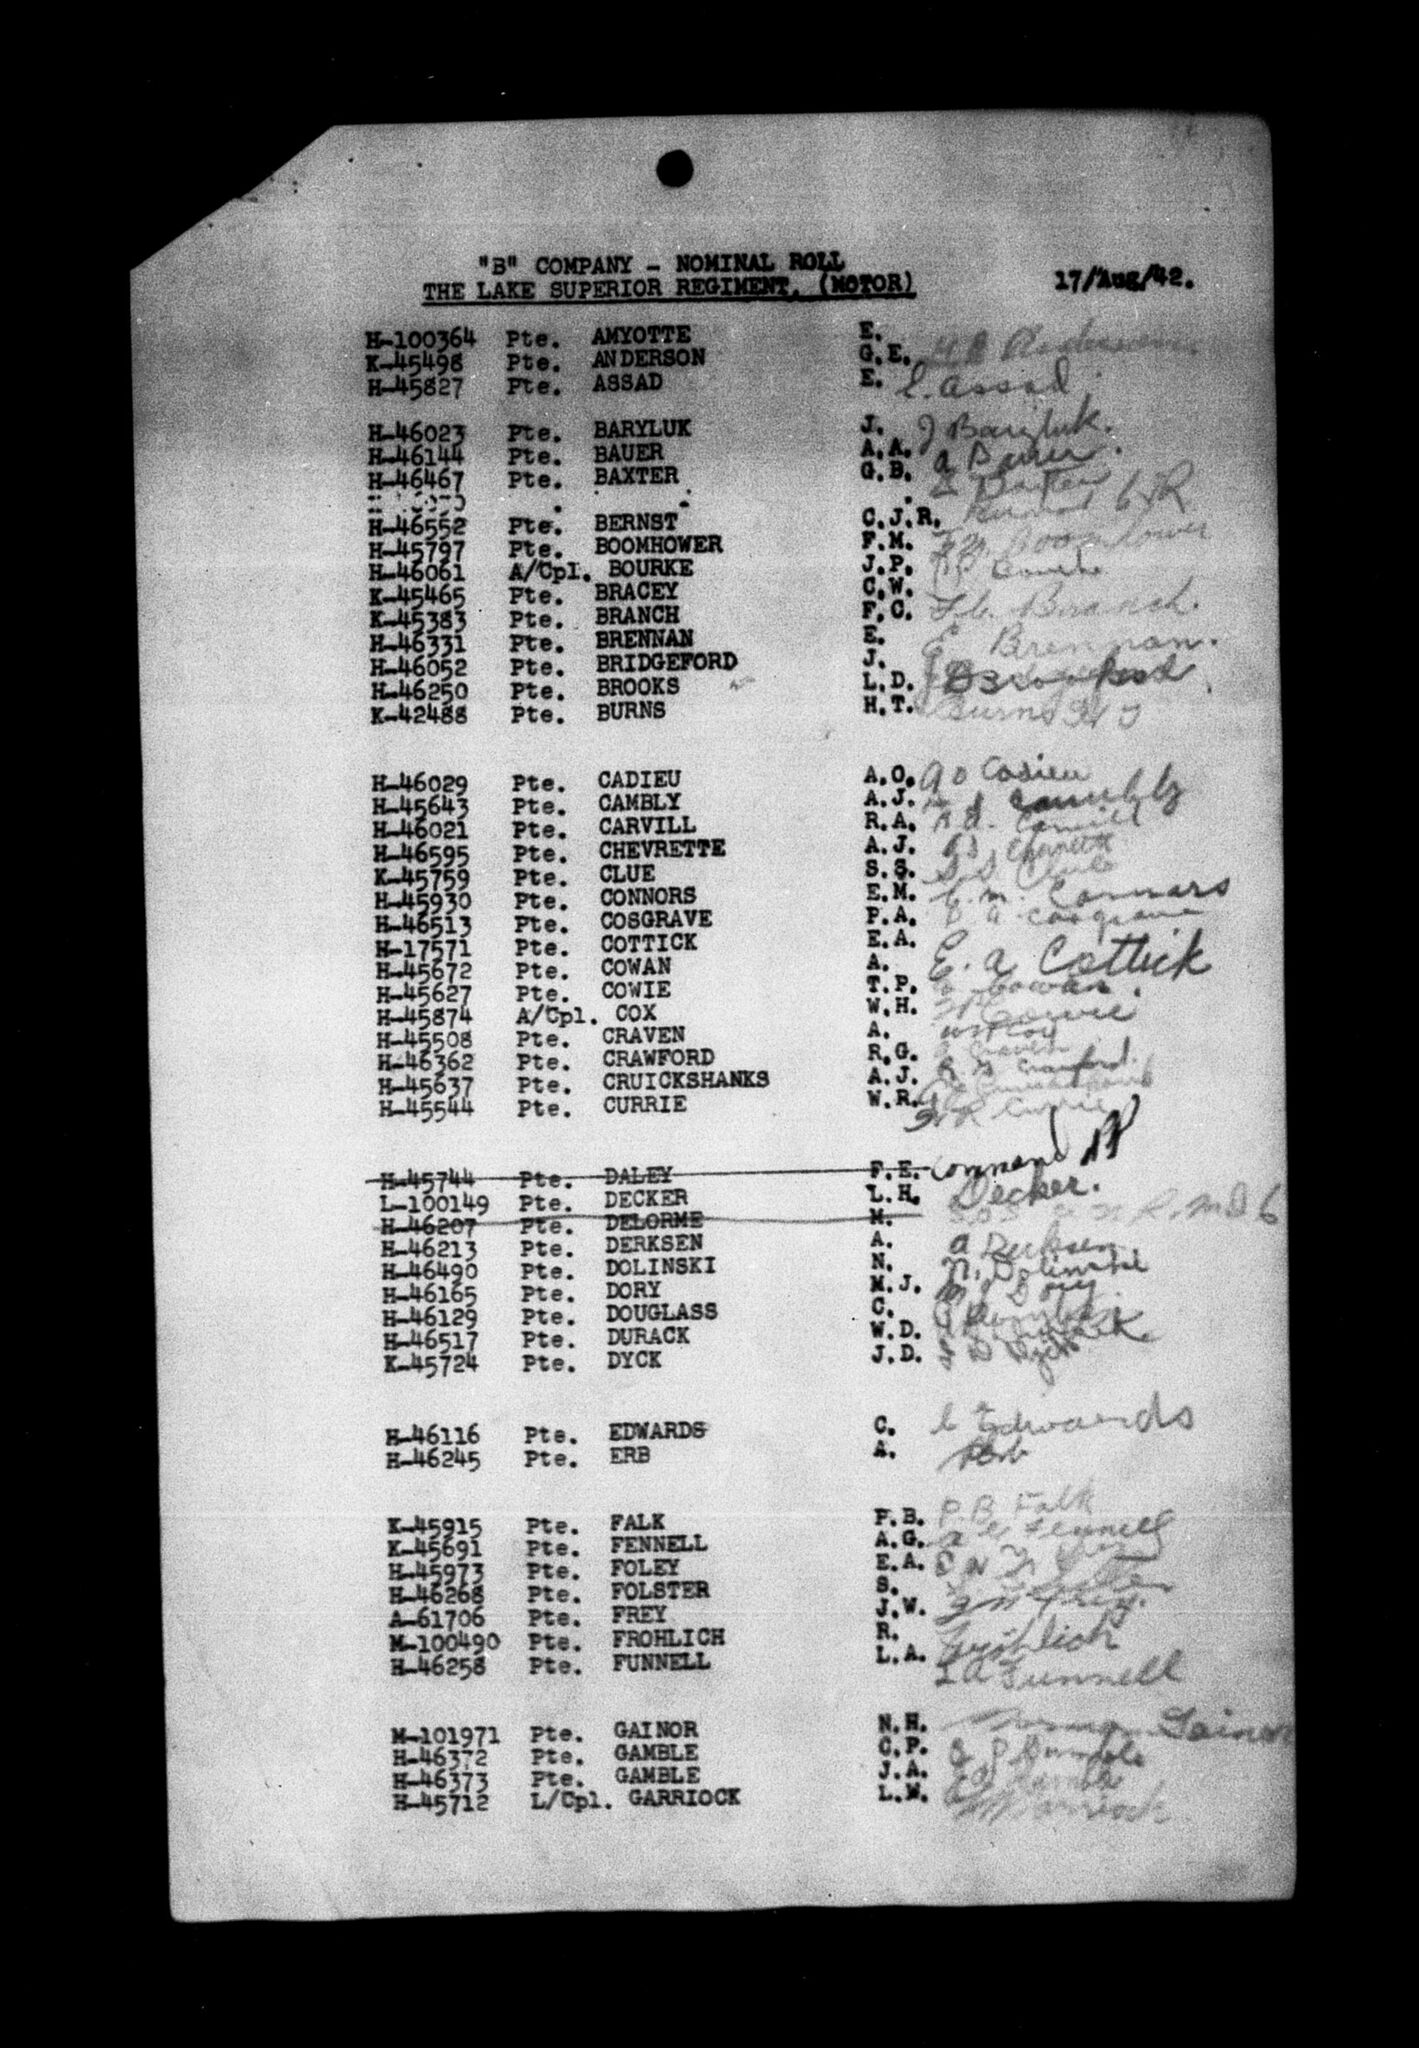 "B" COMPANY - NOMINAL ROLL
THE LAKE SUPERIOR REGIMENT. (MOTOR) 17/Aug/42.
H-100364 Pte. AMYOTTE E.
K-45498 Pte. ANDERSON G.E. Anderson
H-45827 Pte. ASSAD E. E. Assad
H-46023 Pte. BARYLUK J. J Baryluk.
H-46144 Pte. BAUER A.A. A Bauer.
H-46467 Pte. BAXTER G.B. Baxter
H-46552 Pte. BERNST C.J.R. Bernst CJR
H-45797 Pte. BOOMHOWER F.M. F.M. Boomhower
H-46061 A/Cpl. BOURKE J.P. JP Bourke
K-45465 Pte. BRACEY C.W.
K-45383 Pte. BRANCH F.C. F.C. Branch.
H-46331 Pte. BRENNAN E. E Brennan.
H-46052 Pte. BRIDGEFORD J. J Bridgeford
H-46250 Pte. BROOKS L.D.
K-42488 Pte. BURNS H.T. Burns H T
H-46029 Pte. CADIEU A.O. A O Cadieu
H-45643 Pte. CAMBLY A.J. A J Cambly
H-46021 Pte. CARVILL R.A. R.A. Carvill
H-46595 Pte. CHEVRETTE A.J. AJ Chevrette
K-45759 Pte. CLUE S.S. S.S. Clue
H-45930 Pte. CONNORS E.M. E.M. Connors
H-46513 Pte. COSGRAVE P.A. P A Cosgrave
H-17571 Pte. COTTICK E.A. E. A Cottick
H-45672 Pte. COWAN A. A Cowan.
H-45627 Pte. COWIE T.P. TP Cowie
H-45874 A/Cpl. COX W.H. WH Cox
H-45508 Pte. CRAVEN A. A Craven
H-46362 Pte. CRAWFORD R.G. R G Crawford.
H-45637 Pte. CRUICKSHANKS A.J. AJ Cruickshanks
H-45544 Pte. CURRIE W.R. W R Currie
H-45744 Pte. DALEY F.E. Command
L-100149 Pte. DECKER L.H. Decker.
H-46207 Pte. DELORME M. S.O.S. R. M.D. 6
H-46213 Pte. DERKSEN A. A Derksen
H-46490 Pte. DOLINSKI N. N. Dolinski
H-46165 Pte. DORY M.J. M J Dory
H-46129 Pte. DOUGLASS C. C Douglass
H-46517 Pte. DURACK W.D. Durack.
K-45724 Pte. DYCK J.D. J D Dyck
H-46116 Pte. EDWARDS C. C Edwards
H-46245 Pte. ERB A. A Erb
K-45915 Pte. FALK P.B. P.B Falk
K-45691 Pte. FENNELL A.G. A G Fennell
H-45973 Pte. FOLEY E.A.
H-46268 Pte. FOLSTER S. S Folster
A-61706 Pte. FREY J.W. JW Frey.
M-100490 Pte. FROHLICH R. Frohlich
H-46258 Pte. FUNNELL L.A. L A Funnell
M-101971 Pte. GAINOR N.H. Gainor
H-46372 Pte. GAMBLE C.P. C P Gamble
H-46373 Pte. GAMBLE J.A. Gamble
H-45712 L/Cpl. GARRIOCK L.W. Garriock